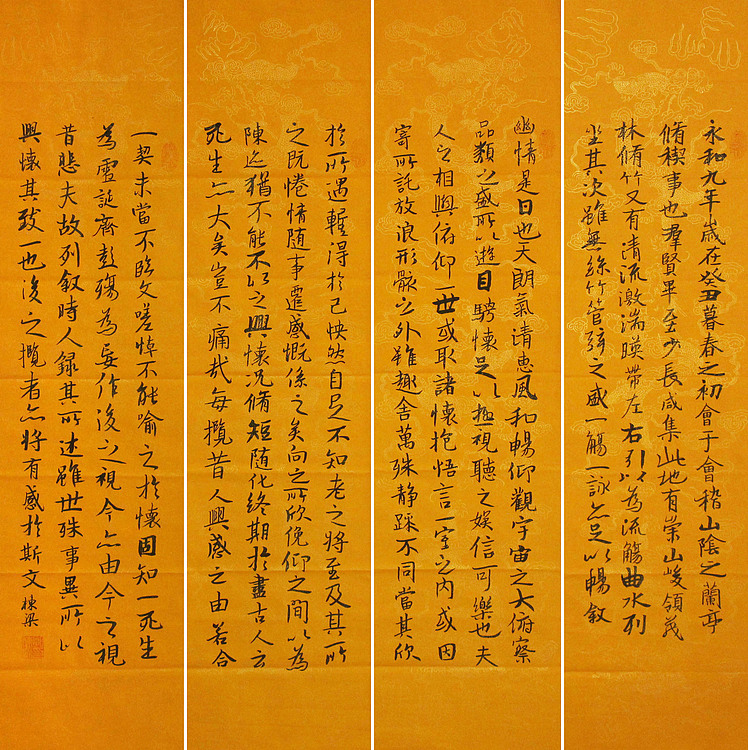 永和九年歲在癸丑暮春之初會于會稽山陰之蘭亭
脩稧事也羣賢畢至少長咸集此地有崇山峻領茂
林脩竹又有清流激湍暎帶左右引以為流觴曲水列
坐其次雖無絲竹管弦之盛一觴一詠亦足以暢敘
幽情是日也天朗氣清惠風和暢仰觀宇宙之大俯察
品類之盛所以遊目騁懷足以極視聽之娛信可樂也夫
人之相與俯仰一世或取諸懷抱悟言一室之內或因
寄所託放浪形骸之外雖趣舍萬殊静躁不同當其欣
於所遇蹔得於己怏然自足不知老之將至及其所
之既惓情随事遷感慨係之矣向之所欣俛仰之間以為
陳迹猶不能不以之興懷況脩短随化終期於盡古人云
死生亦大矣豈不痛哉每攬昔人興感之由若合
一契未嘗不臨文嗟悼不能喻之於懷固知一死生
為虛誕齊彭殤為妄作後之視今亦由今之視
昔悲夫故列叙時人録其所述雖世殊事異所以
興懷其致一也後之攬者亦將有感於斯文 棟梁